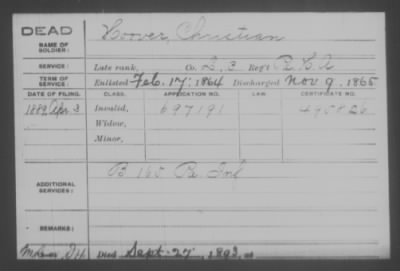 DEAD
NAME OF SOLDIER: Hoover, Christian
SERVICE: Late rank, Co. L, 3 Reg't Pa. H. A
TERM OF SERVICE: Enlisted Feb. 17, 1864 Discharged Nov 9, 1865
DATE OF FILING. CLASS. APPLICATION NO. LAW. CERTIFICATE NO.
1889, Apr 3 Invalid, 697191 490826
Widow,
Minor,
ADDITIONAL SERVICES: B 165 Pa Inf
REMARKS:
Died Sept. 27, 1893, at